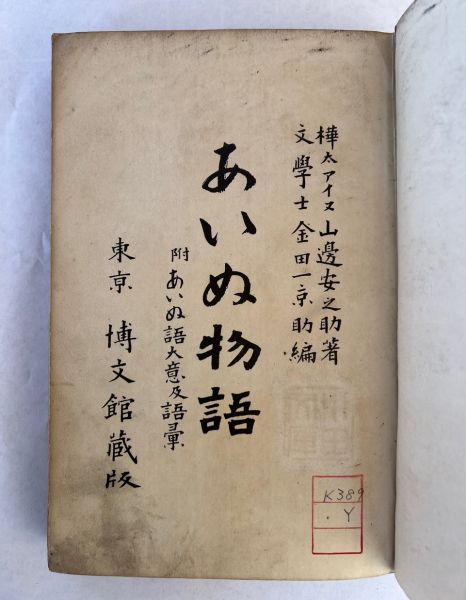 樺太アイヌ山邊安之助著
文學士金田一京助編
あいぬ物語
附あいぬ語大意及語彙
東京 博文館藏版
K389
.Y